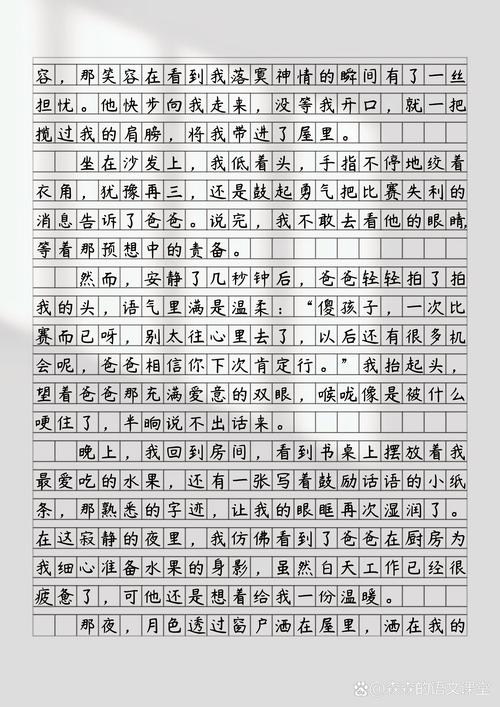 容，那笑容在看到我落寞神情的瞬间有了一丝
担忧。他快步向我走来，没等我开口，就一把
揽过我的肩膀，将我带进了屋里。
坐在沙发上，我低着头，手指不停地绞着
衣角，犹豫再三，还是鼓起勇气把比赛失利的
消息告诉了爸爸。说完，我不敢去看他的眼睛，
等着那预想中的责备。
然而，安静了几秒钟后，爸爸轻轻拍了拍
我的头，语气里满是温柔：“傻孩子，一次比
赛而已呀，别太往心里去了，以后还有很多机
会呢，爸爸相信你下次肯定行。”我抬起头，
望着爸爸那充满爱意的双眼，喉咙像是被什么
哽住了，半晌说不出话来。
晚上，我回到房间，看到书桌上摆放着我
最爱吃的水果，还有一张写着鼓励话语的小纸
条，那熟悉的字迹，让我的眼眶再次湿润了。
在这寂静的夜里，我仿佛看到了爸爸在厨房为
我细心准备水果的身影，虽然白天工作已经很
疲惫了，可他还是想着给我一份温暖。
那夜，月色透过窗户洒在屋里，洒在我的
@森森的语文课堂